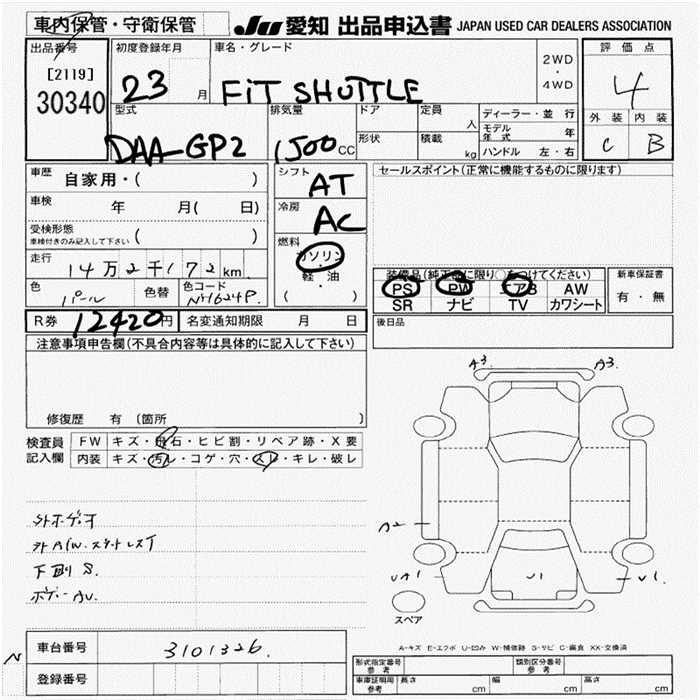 車内保管・守衛保管
JU 愛知 出品申込書 JAPAN USED CAR DEALERS ASSOCIATION
出品番号
[2119]
30340
初度登録年月
23 月
車名・グレード
FiT SHUTTLE
2WD
・
4WD
評価点
4
外装 内装
C B
型式
DAA-GP2
排気量
1500 CC
ドア
形状
定員
人
積載
kg
ディーラー・並行
モデル年式 年
ハンドル 左・右
車歴
自家用・( )
車検
年 月(日 )
受検形態
車検付きのみ記入して下さい ( )
走行
14万2千172km
色
パール
色替
色コード
NH624P
シフト
AT
冷房
AC
燃料
ガソリン
・
軽・油
( )
R券 12420円
名変通知期限 月 日
セールスポイント(正常に機能するものに限ります)
装備品(純正品に限り○をつけてください)
PS PW エアB AW
SR ナビ TV カワシート
新車保証書
有・無
後日品
注意事項申告欄(不具合内容等は具体的に記入して下さい)
修復歴 有 〔箇所 〕
検査員
記入欄
FW キズ・飛石・ヒビ割・リペア跡・X要
内装 キズ・汚レ・コゲ・穴・スレ・キレ・破レ
下廻S.
A3 A3
A2
UA1 U1 U1
スペア
A-キズ E-エクボ U-凹み W-補修跡 S-サビ C-腐食 XX-交換済
車台番号
3101326.
N
登録番号
形式指定番号
参考
類別区分番号
参考
車庫証明用
参考
長さ cm
幅 cm
高さ cm